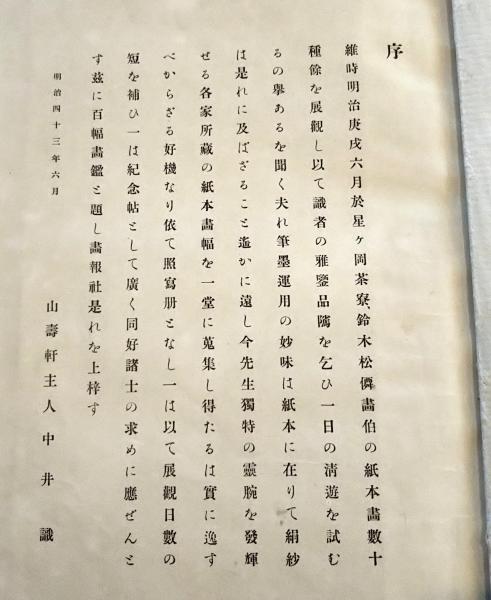 序
維時明治庚戌六月於星ヶ岡茶寮、鈴木松僊畵伯の紙本畵數十
種餘を展觀し以て識者の雅鑒品隲を乞ひ一日の淸遊を試む
るの擧あるを聞く夫れ筆墨運用の妙味は紙本に在りて絹紗
は是れに及ばざること遙かに遠し今先生獨特の靈腕を發輝
せる各家所藏の紙本畵幅を一堂に蒐集し得たるは實に逸す
べからざる好機なり依て照寫册となし一は以て展觀日數の
短を補ひ一は紀念帖として廣く同好諸士の求めに應ぜんと
す玆に百幅畵鑑と題し畵報社是れを上梓す
明治四十三年六月
山壽軒主人中井識